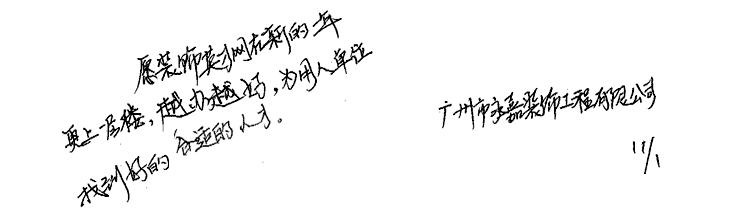 愿装饰英才网在新的一年
更上一层楼，越办越好，为用人单位
找到好的合适的人才。
广州市永嘉装饰工程有限公司
11/1